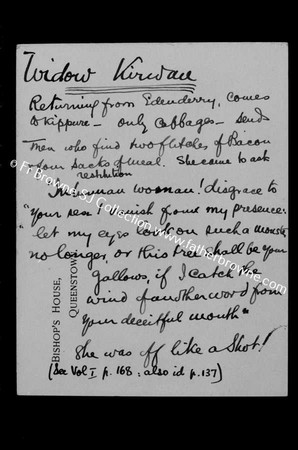 Widow Kirwan
Returning from Edenderry, comes
to Kippure — only Cabbages — sends
men who find two flitches of Bacon
& four sacks of meal. She come to ask
restitution
Inhuman woman! disgrace to
"your sex! Vanish from my presence:
let my eyes behold such a monster
no longer, or this tree shall be your
gallows, if I catch the
wind of another word from
your deceitful mouth"
She was off like a Shot!
(See Vol I p. 168: also id p. 137)
BISHOP'S HOUSE,
QUEENSTOWN
© Fr Browne S.J. Collection www.fatherbrowne.com